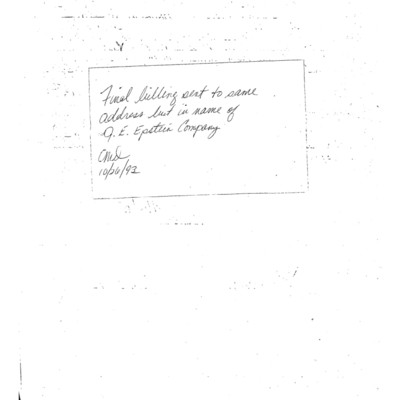 Final billing sent to same
address but in name of
J. E. Epstein Company
10/26/92